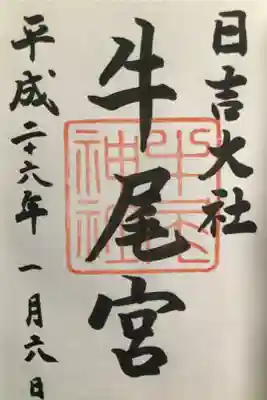 日吉大社
牛尾宮
牛尾神社
平成二十六年一月六日